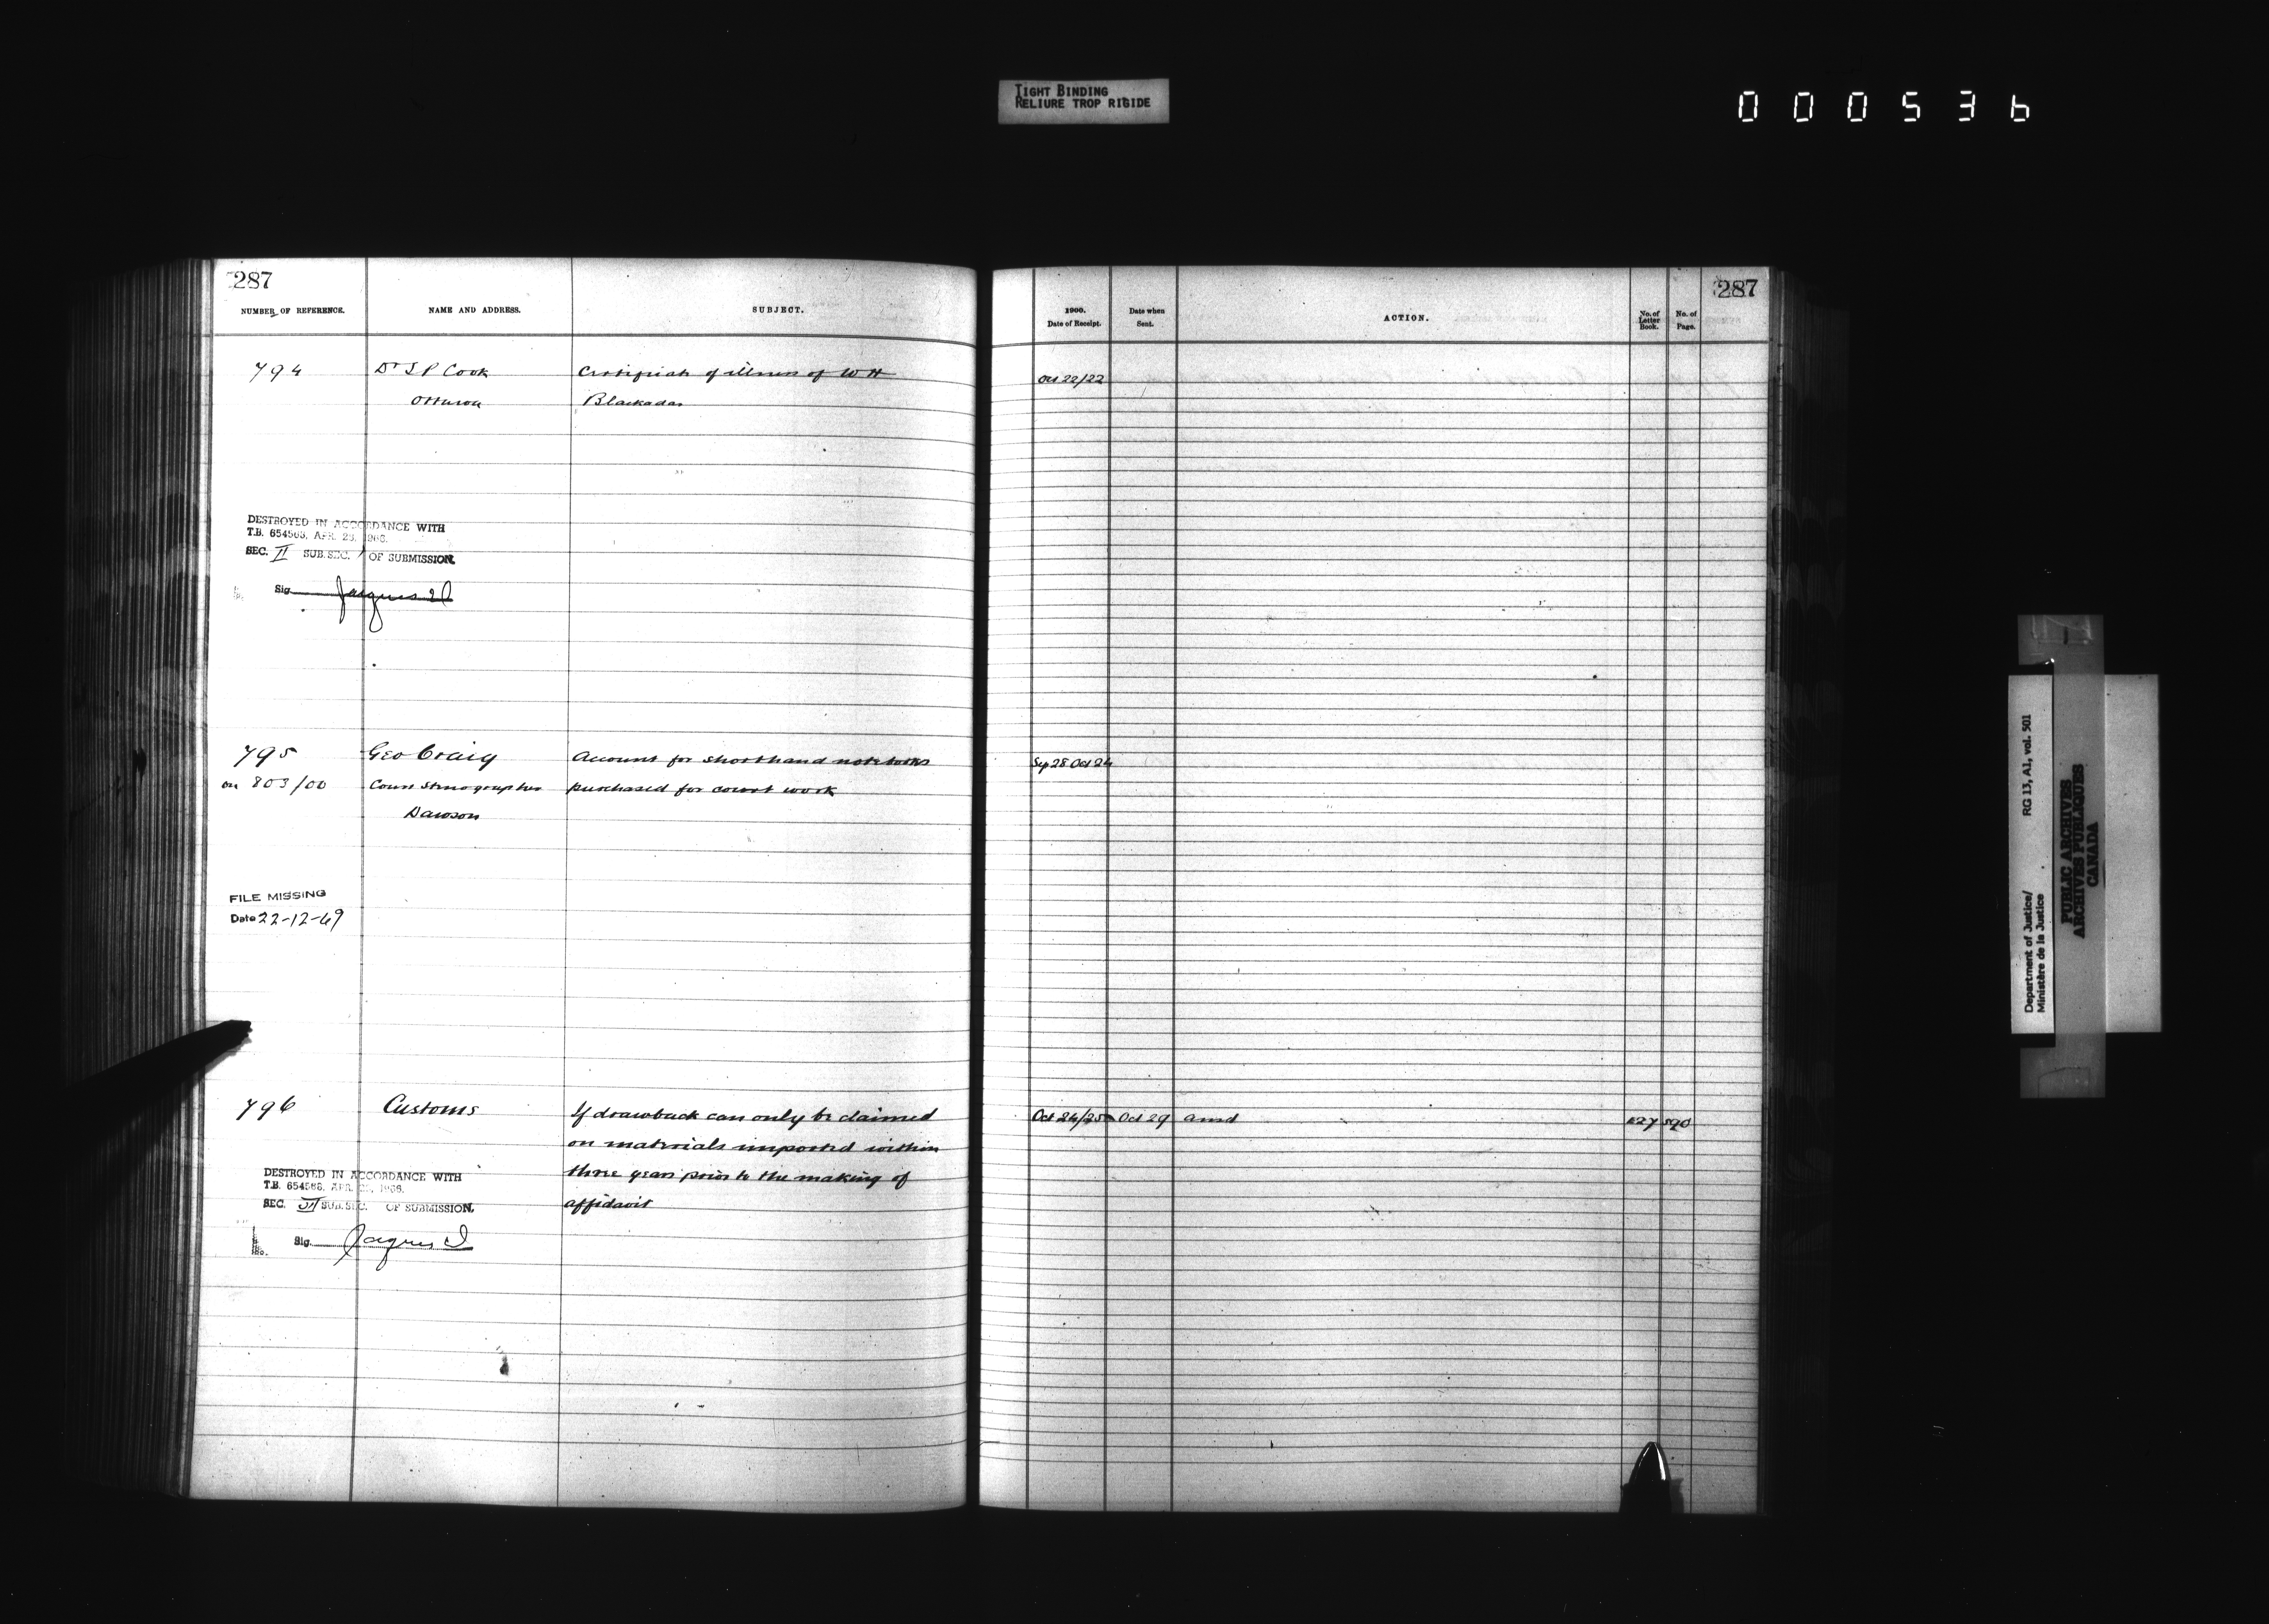 TIGHT BINDING
RELIURE TROP RIGIDE
000536
287
NUMBER OF REFERENCE.
NAME AND ADDRESS.
SUBJECT.
794
Dr S P Cook
Certificate of illness of W H
Ottawa
Blackadar
DESTROYED IN ACCORDANCE WITH
T.B. 654565, APR. 26, 1966.
SEC. II SUB.SEC. OF SUBMISSION.
Sig. Jacques
795
Geo Craig
Account for shorthand notebooks
on 803/00
Court Stenographer
purchased for court work
Dawson
FILE MISSING
Date 22-12-69
796
Customs
If drawback can only be claimed
on materials imported within
three years prior to the making of
affidavit
DESTROYED IN ACCORDANCE WITH
T.B. 654565, APR. 26, 1966.
SEC. SUB.SEC. OF SUBMISSION.
Sig. Jacques
287
1900.
Date of Receipt.
Date when
Sent.
ACTION.
No. of
Letter
Book.
No. of
Page.
Oct 22/22
Sep 28 Oct 24
Oct 24/25 Oct 29 ansd 127 590
Department of Justice/
Ministère de la Justice
RG 13, A1, vol. 501
PUBLIC ARCHIVES
ARCHIVES PUBLIQUES
CANADA